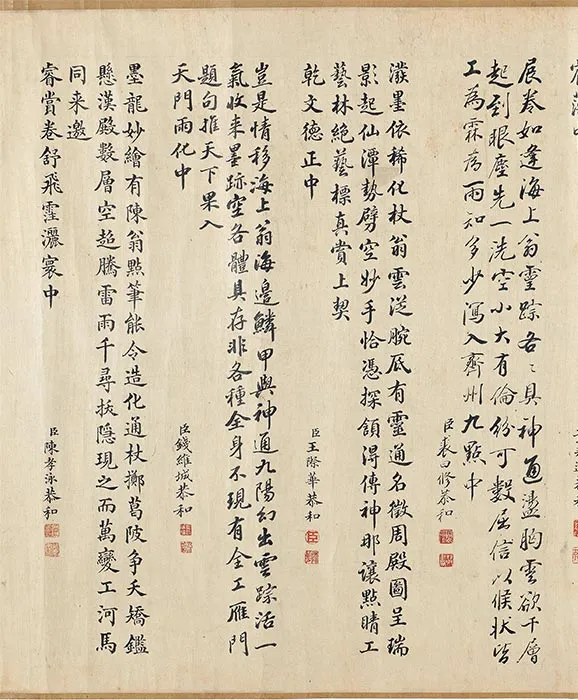 展卷如逢海上翁靈踪各〻具神通盪胸雲欲千層
起到眼塵先一洗空小大有倫紛可數屈信以候狀皆
工為霖為雨知多少瀉入齊州九點中
臣裘曰修恭和
潑墨依稀化杖翁雲從腕底有靈通名徵周殿圖呈瑞
影起仙潭勢劈空妙手恰憑探頷得傳神那讓點睛工
藝林絕藝標真賞上契
乾文德正中
臣王際華恭和
豈是情移海上翁海邊鱗甲與神通九陽幻出雲踪活一
氣收来墨跡空各體具存非各種全身不現有全工雁門
題句推天下果入
天門雨化中
臣錢維城恭和
墨龍妙繪有陳翁點筆能令造化通杖擲葛陂争夭矯鑑
懸漢殿數層空超騰雷雨千尋拔隱現之而萬變工河馬
同来邀
睿賞卷舒飛霔灑寰中
臣陳孝泳恭和